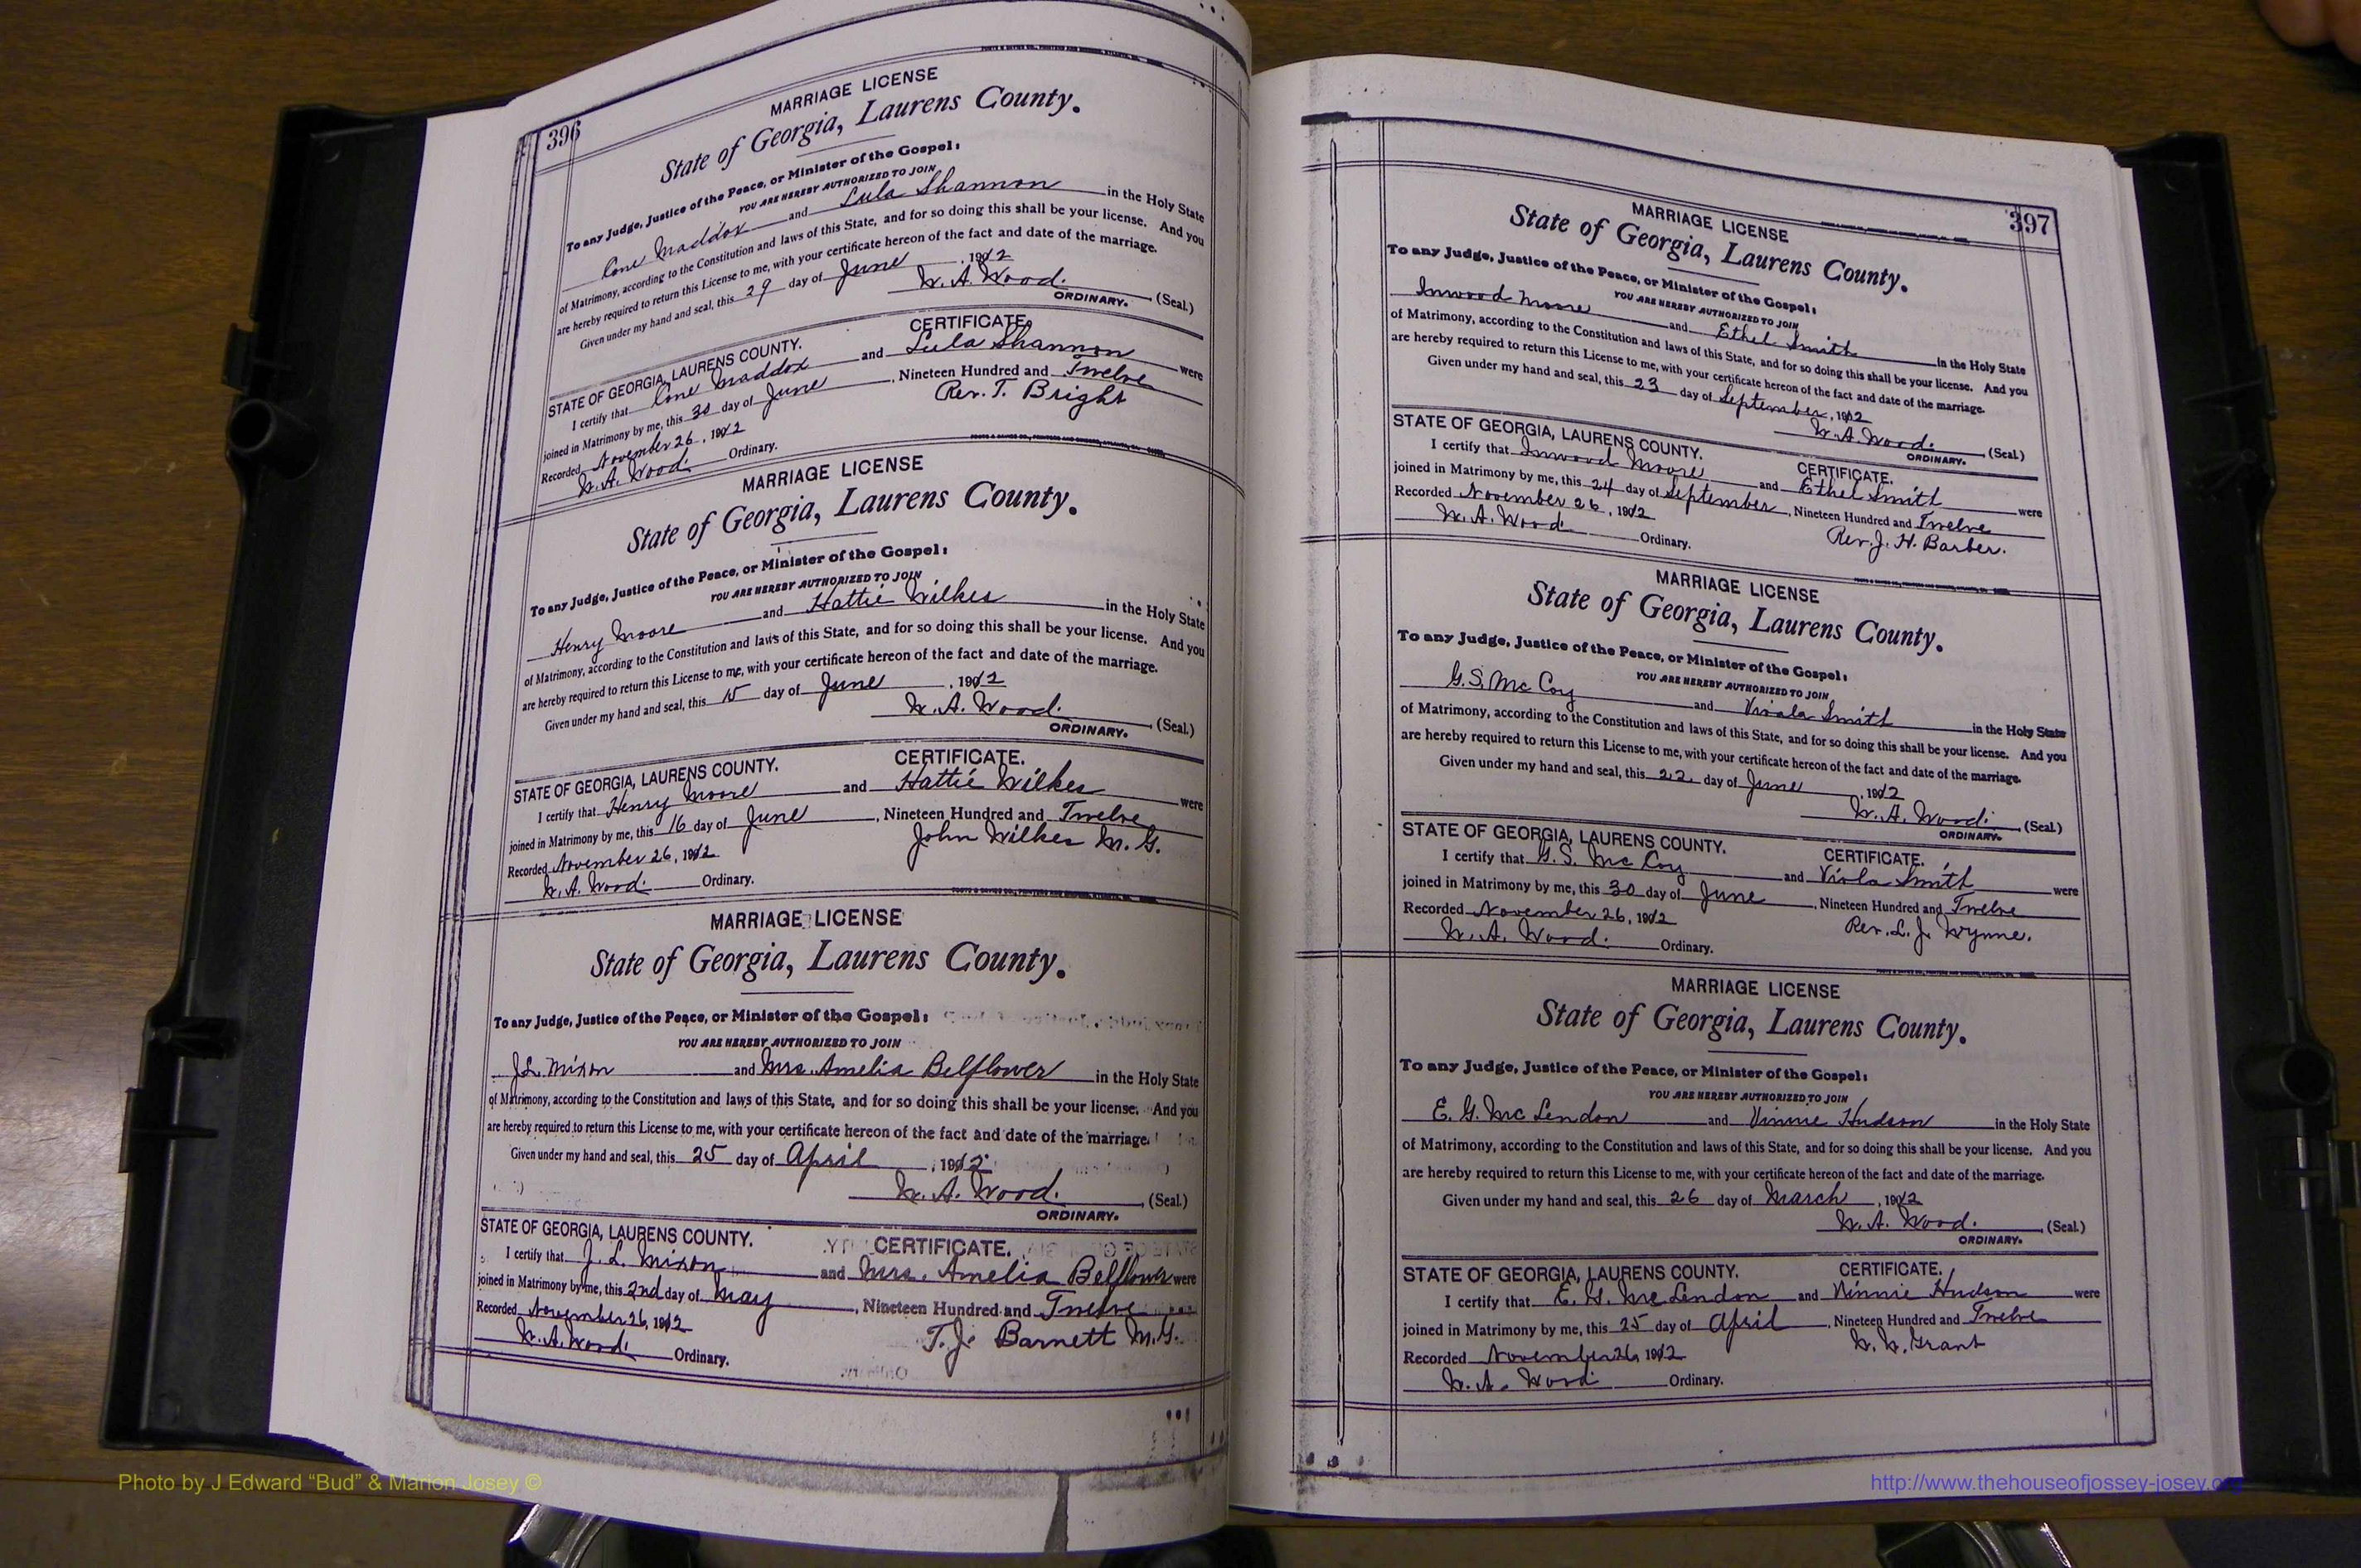 396
MARRIAGE LICENSE
State of Georgia, Laurens County.
To any Judge, Justice of the Peace, or Minister of the Gospel:
YOU ARE HEREBY AUTHORIZED TO JOIN
Cone Maddox and Lula Shannon in the Holy State
of Matrimony, according to the Constitution and laws of this State, and for so doing this shall be your license. And you
are hereby required to return this License to me, with your certificate hereon of the fact and date of the marriage.
Given under my hand and seal, this 29 day of June, 1912
W. A. Wood. (Seal.)
ORDINARY.
STATE OF GEORGIA, LAURENS COUNTY. CERTIFICATE.
I certify that Cone Maddox and Lula Shannon were
joined in Matrimony by me, this 30 day of June, Nineteen Hundred and Twelve
Recorded November 26, 1912 Rev. T. Bright
W. A. Wood. Ordinary.
MARRIAGE LICENSE
State of Georgia, Laurens County.
To any Judge, Justice of the Peace, or Minister of the Gospel:
YOU ARE HEREBY AUTHORIZED TO JOIN
Henry Moore and Hattie Wilkes in the Holy State
of Matrimony, according to the Constitution and laws of this State, and for so doing this shall be your license. And you
are hereby required to return this License to me, with your certificate hereon of the fact and date of the marriage.
Given under my hand and seal, this 15 day of June, 1912
W. A. Wood. (Seal.)
ORDINARY.
STATE OF GEORGIA, LAURENS COUNTY. CERTIFICATE.
I certify that Henry Moore and Hattie Wilkes were
joined in Matrimony by me, this 16 day of June, Nineteen Hundred and Twelve
Recorded November 26, 1912 John Wilkes M.G.
W. A. Wood. Ordinary.
MARRIAGE LICENSE
State of Georgia, Laurens County.
To any Judge, Justice of the Peace, or Minister of the Gospel:
YOU ARE HEREBY AUTHORIZED TO JOIN
J.L. Mixon and Mrs. Amelia Belflower in the Holy State
of Matrimony, according to the Constitution and laws of this State, and for so doing this shall be your license. And you
are hereby required to return this License to me, with your certificate hereon of the fact and date of the marriage.
Given under my hand and seal, this 25 day of April, 1912
W. A. Wood. (Seal.)
ORDINARY.
STATE OF GEORGIA, LAURENS COUNTY. CERTIFICATE.
I certify that J. L. Mixon and Mrs. Amelia Belflower were
joined in Matrimony by me, this 2nd day of May, Nineteen Hundred and Twelve
Recorded November 26, 1912 T. J. Barnett M.G.
W. A. Wood. Ordinary.
397
MARRIAGE LICENSE
State of Georgia, Laurens County.
To any Judge, Justice of the Peace, or Minister of the Gospel:
YOU ARE HEREBY AUTHORIZED TO JOIN
Inwood Moore and Ethel Smith in the Holy State
of Matrimony, according to the Constitution and laws of this State, and for so doing this shall be your license. And you
are hereby required to return this License to me, with your certificate hereon of the fact and date of the marriage.
Given under my hand and seal, this 23 day of September, 1912
W. A. Wood. (Seal.)
ORDINARY.
STATE OF GEORGIA, LAURENS COUNTY. CERTIFICATE.
I certify that Inwood Moore and Ethel Smith were
joined in Matrimony by me, this 24 day of September, Nineteen Hundred and Twelve
Recorded November 26, 1912 Rev. J. H. Barber.
W. A. Wood Ordinary.
MARRIAGE LICENSE
State of Georgia, Laurens County.
To any Judge, Justice of the Peace, or Minister of the Gospel:
YOU ARE HEREBY AUTHORIZED TO JOIN
G. S. McCoy and Viola Smith in the Holy State
of Matrimony, according to the Constitution and laws of this State, and for so doing this shall be your license. And you
are hereby required to return this License to me, with your certificate hereon of the fact and date of the marriage.
Given under my hand and seal, this 22 day of June, 1912
W. A. Wood. (Seal.)
ORDINARY.
STATE OF GEORGIA, LAURENS COUNTY. CERTIFICATE.
I certify that G. S. McCoy and Viola Smith were
joined in Matrimony by me, this 30 day of June, Nineteen Hundred and Twelve
Recorded November 26, 1912 Rev. L. J. Wynne.
W. A. Wood. Ordinary.
MARRIAGE LICENSE
State of Georgia, Laurens County.
To any Judge, Justice of the Peace, or Minister of the Gospel:
YOU ARE HEREBY AUTHORIZED TO JOIN
E. G. McLendon and Vinnie Hudson in the Holy State
of Matrimony, according to the Constitution and laws of this State, and for so doing this shall be your license. And you
are hereby required to return this License to me, with your certificate hereon of the fact and date of the marriage.
Given under my hand and seal, this 26 day of March, 1912
W. A. Wood. (Seal.)
ORDINARY.
STATE OF GEORGIA, LAURENS COUNTY. CERTIFICATE.
I certify that E. G. McLendon and Vinnie Hudson were
joined in Matrimony by me, this 25 day of April, Nineteen Hundred and Twelve
Recorded November 26, 1912 W. W. Grant
W. A. Wood Ordinary.
Photo by J Edward “Bud” & Marion Josey ©
http://www.thehouseofjossey-josey.org